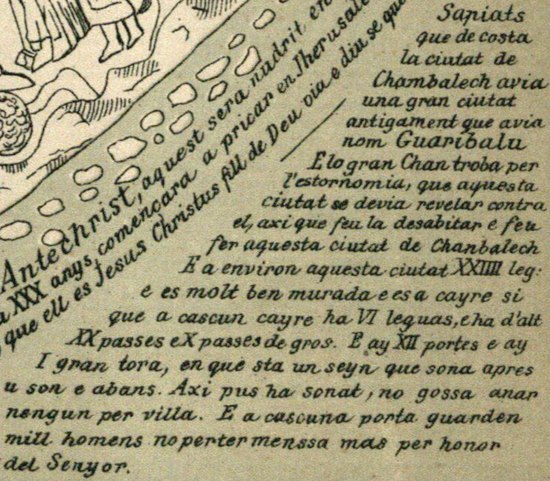 Antechrist, aquest sera nudrit en
XXX anys comencara a pricar en Jherusale
que ell es Jesus Christus fill de Deu viu e diu se que
Sapiats
que de costa
la ciutat de
Chambalech avia
una gran ciutat
antigament que avia
nom Guaribalu
E lo gran Chan troba per
l'estornomia, que aquesta
ciutat se devia revelar contra
el, axi que feu la desabitar e feu
fer aquesta ciutat de Chanbalech
E a environ aquesta ciutat XXIIII leg:
e es molt ben murada e es a cayre si
que a cascun cayre ha VI leguas, e ha d'alt
XX passes e X passes de gros. E ay XII portes e ay
I gran tora, en que sta un seyn que sona apres
u son e abans. Axi pus ha sonat, no gossa anar
nengun per villa. E a cascuna porta guarden
mill homens no per termenssa mas per honor
del Senyor.